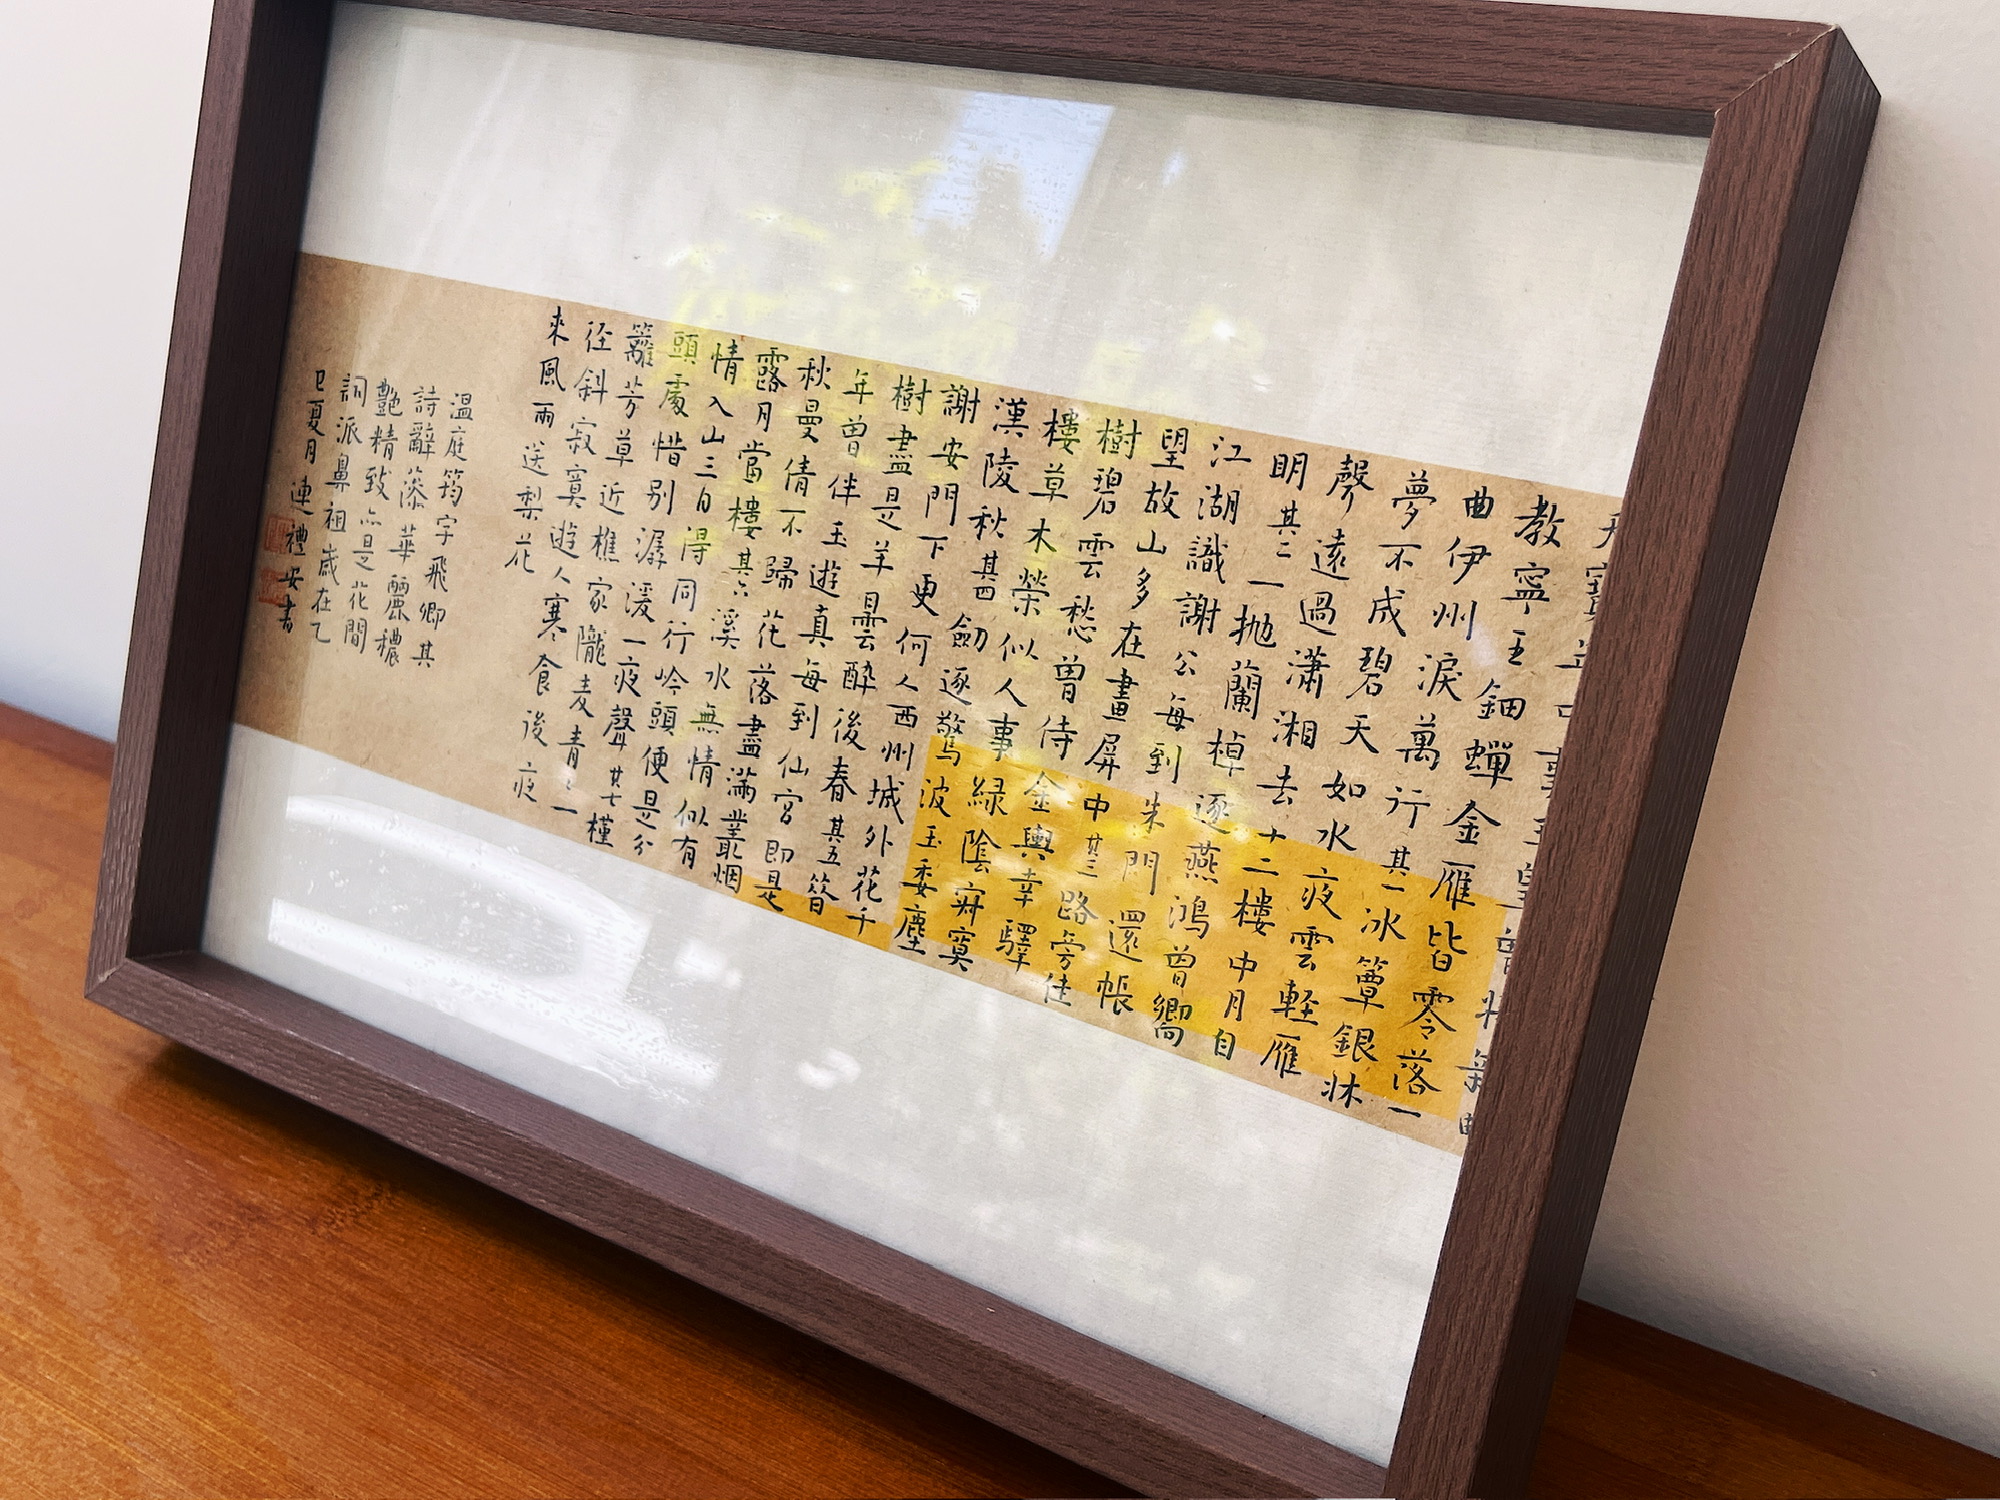 教寧王鈿蟬金雁皆零落一
曲伊州淚萬行其一冰簟銀牀
夢不成碧天如水夜雲軽雁
聲遠過瀟湘去十二樓中月自
明其二一拋蘭棹逐燕鴻曾嚮
江湖識謝公每到朱門還帳
望故山多在畫屏中其三路旁佳
樹碧雲愁曾侍金輿幸驛
樓草木榮似人事緑陰寂寞
漢陵秋其四劒逐驚波玉委塵
謝安門下更何人西州城外花千
樹盡是羊曇醉後春其五簪
年曾伴玉遊真每到仙宮即是
秋曼倩不歸花落盡滿叢烟
露月當樓其六溪水無情似有
情入山三日得同行岭頭便是分
頭處惜別潺湲一夜聲其七槿
籬芳草近樵家隴麦青々一
径斜寂寞遊人寒食後夜
來風雨送梨花
温庭筠字飛卿其
詩辭藻華麗穠
艷精致亦是花間
詞派鼻祖歲在乙
巳夏月連禮安書